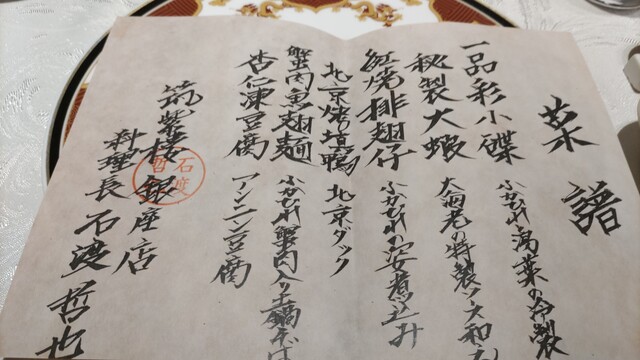 菜譜
一品彩小碟
ふかひれと湯葉の冷製
秘製大蝦
大海老の特製ソース和え
紅焼排翅仔
ふかひれの姿煮込み
北京焼填鴨
北京ダック
蟹肉魚翅麺
ふかひれ蟹肉入り土鍋そば
杏仁凍豆腐
アンニン豆腐
筑紫樓銀座店
料理長 石渡哲也